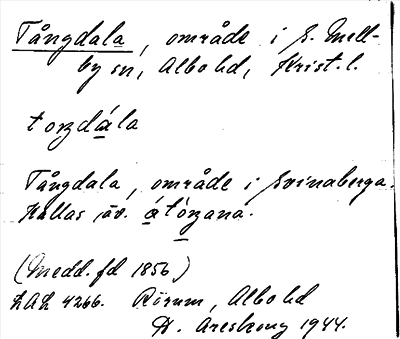 Tångdala, område i S. Mell-
by sn, Albo hd, Krist. l.
toŋdála
Tångdala, område i Svinaberga.
Kallas äv. átóŋana.
(Medd. fd 1856)
LAL 4266. Rörum, Albo hd
H. Areskoug 1944.